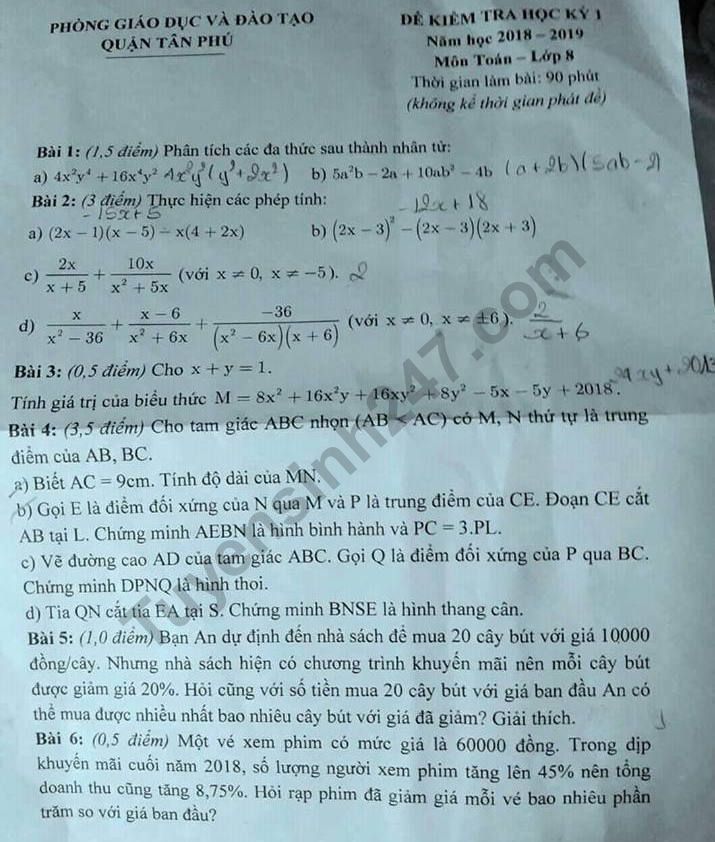 PHÒNG GIÁO DỤC VÀ ĐÀO TẠO
QUẬN TÂN PHÚ
ĐỀ KIỂM TRA HỌC KỲ 1
Năm học 2018 – 2019
Môn Toán – Lớp 8
Thời gian làm bài: 90 phút
(không kể thời gian phát đề)
Bài 1: (1,5 điểm) Phân tích các đa thức sau thành nhân tử:
a) 4x²y⁴ + 16x⁴y² 4x²y²(y²+4x²) b) 5a²b − 2a + 10ab² − 4b (a+2b)(5ab−2)
Bài 2: (3 điểm) Thực hiện các phép tính:
−15x+5 −12x+18
a) (2x − 1)(x − 5) − x(4 + 2x) b) (2x − 3)² − (2x − 3)(2x + 3)
c) 2x/(x + 5) + 10x/(x² + 5x) (với x ≠ 0, x ≠ −5). 2
d) x/(x² − 36) + (x − 6)/(x² + 6x) + −36/((x² − 6x)(x + 6)) (với x ≠ 0, x ≠ ±6). 2/(x+6)
Bài 3: (0,5 điểm) Cho x + y = 1.
Tính giá trị của biểu thức M = 8x² + 16x²y + 16xy² + 8y² − 5x − 5y + 2018.
Bài 4: (3,5 điểm) Cho tam giác ABC nhọn (AB < AC) có M, N thứ tự là trung
điểm của AB, BC.
a) Biết AC = 9cm. Tính độ dài của MN.
b) Gọi E là điểm đối xứng của N qua M và P là trung điểm của CE. Đoạn CE cắt
AB tại L. Chứng minh AEBN là hình bình hành và PC = 3.PL.
c) Vẽ đường cao AD của tam giác ABC. Gọi Q là điểm đối xứng của P qua BC.
Chứng minh DPNQ là hình thoi.
d) Tia QN cắt tia EA tại S. Chứng minh BNSE là hình thang cân.
Bài 5: (1,0 điểm) Bạn An dự định đến nhà sách để mua 20 cây bút với giá 10000
đồng/cây. Nhưng nhà sách hiện có chương trình khuyến mãi nên mỗi cây bút
được giảm giá 20%. Hỏi cũng với số tiền mua 20 cây bút với giá ban đầu An có
thể mua được nhiều nhất bao nhiêu cây bút với giá đã giảm? Giải thích.
Bài 6: (0,5 điểm) Một vé xem phim có mức giá là 60000 đồng. Trong dịp
khuyến mãi cuối năm 2018, số lượng người xem phim tăng lên 45% nên tổng
doanh thu cũng tăng 8,75%. Hỏi rạp phim đã giảm giá mỗi vé bao nhiêu phần
trăm so với giá ban đầu?
Tuyensinh247.com